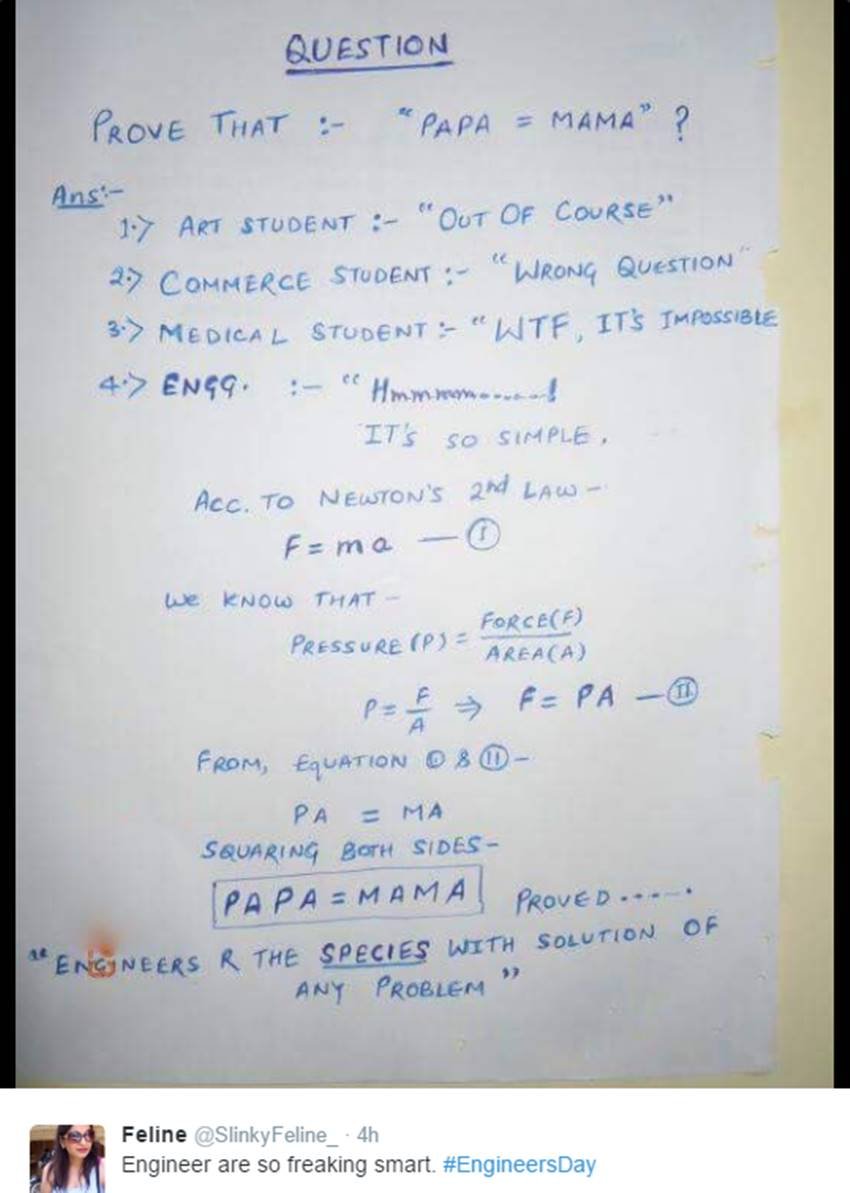 QUESTION
PROVE THAT :- "PAPA = MAMA" ?
Ans:-
1.> ART STUDENT :- "OUT OF COURSE"
2.> COMMERCE STUDENT :- "WRONG QUESTION"
3.> MEDICAL STUDENT :- "WTF, IT'S IMPOSSIBLE
4.> ENGG. :- "Hmmmmm......!
IT'S SO SIMPLE.
ACC. TO NEWTON'S 2nd LAW -
F = ma — (I)
We KNOW THAT -
PRESSURE (P) = FORCE(F) / AREA(A)
P = F/A ⇒ F = PA — (II)
FROM, EQUATION (I) & (II) -
PA = MA
SQUARING BOTH SIDES -
PAPA = MAMA PROVED......
"ENGINEERS R THE SPECIES WITH SOLUTION OF
ANY PROBLEM"
Feline @SlinkyFeline_ · 4h
Engineer are so freaking smart. #EngineersDay